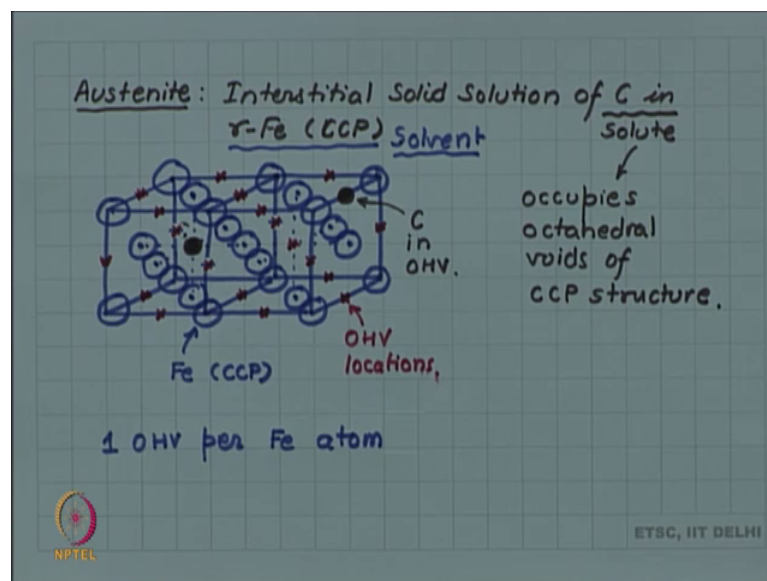 Austenite: Interstitial Solid Solution of C in
γ-Fe (CCP) Solvent
Solute
occupies
octahedral
voids of
CCP structure.
C
in
OHV.
OHV
locations,
Fe (CCP)
1 OHV per Fe atom
NPTEL
ETSC, IIT DELHI